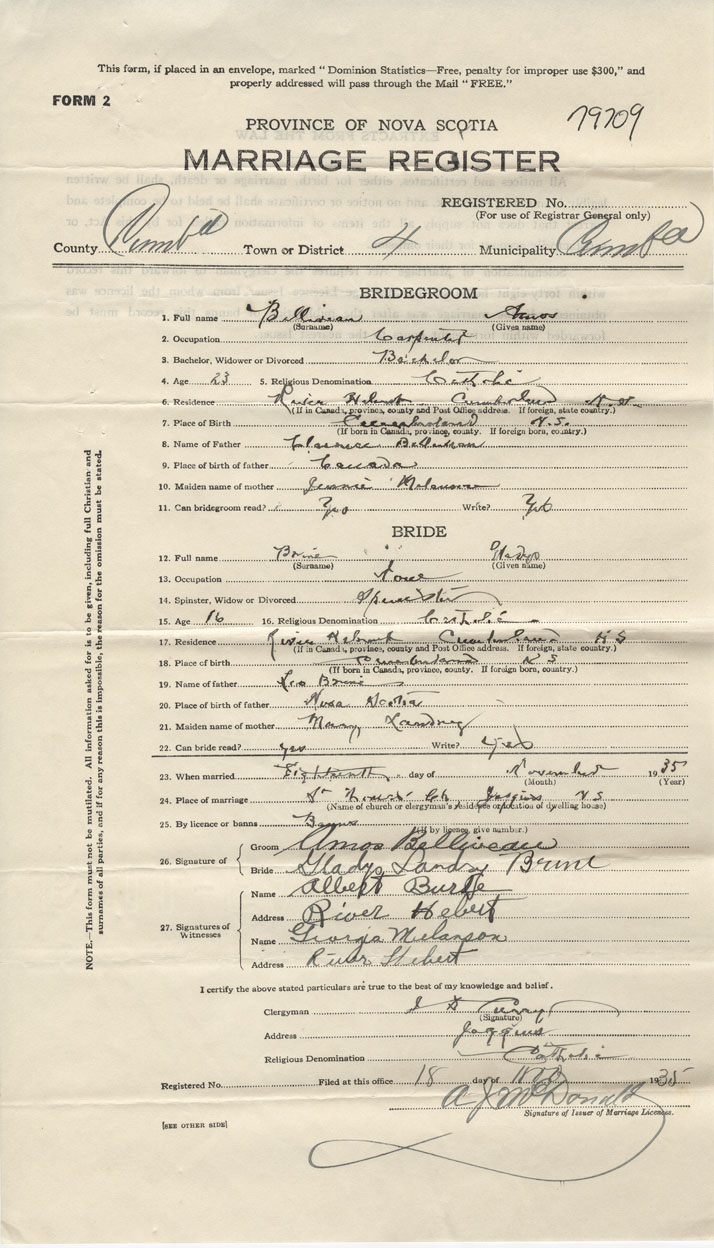 This form, if placed in an envelope, marked "Dominion Statistics—Free, penalty for improper use $300," and
properly addressed will pass through the Mail "FREE."
FORM 2
79709
PROVINCE OF NOVA SCOTIA
MARRIAGE REGISTER
REGISTERED No.
(For use of Registrar General only)
County Town or District 4 Municipality
BRIDEGROOM
1. Full name Belliveau Amos
(Surname) (Given name)
2. Occupation Carpenter
3. Bachelor, Widower or Divorced Bachelor
4. Age 23 5. Religious Denomination Catholic
6. Residence River Hebert Cumberland N.S.
(If in Canada, province, county and Post Office address. If foreign, state country.)
7. Place of Birth Cumberland N.S.
(If born in Canada, province, county. If foreign born, country.)
8. Name of Father Clarence Belliveau
9. Place of birth of father Canada
10. Maiden name of mother Jennie Melanson
11. Can bridegroom read? Yes Write? Yes
BRIDE
12. Full name Brine Gladys
(Surname) (Given name)
13. Occupation
14. Spinster, Widow or Divorced Spinster
15. Age 16 16. Religious Denomination Catholic
17. Residence River Hebert Cumberland N S
(If in Canada, province, county and Post Office address. If foreign, state country.)
18. Place of birth Cumberland N S
(If born in Canada, province, county. If foreign born, country.)
19. Name of father Leo Brine
20. Place of birth of father Nova Scotia
21. Maiden name of mother Mary Landry
22. Can bride read? yes Write? yes
23. When married Eighteenth day of November 1935
(Month) (Year)
24. Place of marriage Joggins N S
(Name of church or clergyman's residence or location of dwelling house)
25. By licence or banns Banns
(If by licence, give number.)
26. Signature of
Groom Amos Belliveau
Bride Gladys Landry Brine
27. Signatures of Witnesses
Name Albert Burke
Address River Hebert
Name Georgie Melanson
Address River Hebert
I certify the above stated particulars are true to the best of my knowledge and belief.
Clergyman
(Signature)
Address Joggins
Religious Denomination Catholic
Registered No. Filed at this office 18 day of Nov 1935
A J McDonald
Signature of Issuer of Marriage Licences.
[SEE OTHER SIDE]
NOTE.—This form must not be mutilated. All information asked for is to be given, including full Christian and
surnames of all parties, and if for any reason this is impossible, the reason for the omission must be stated.